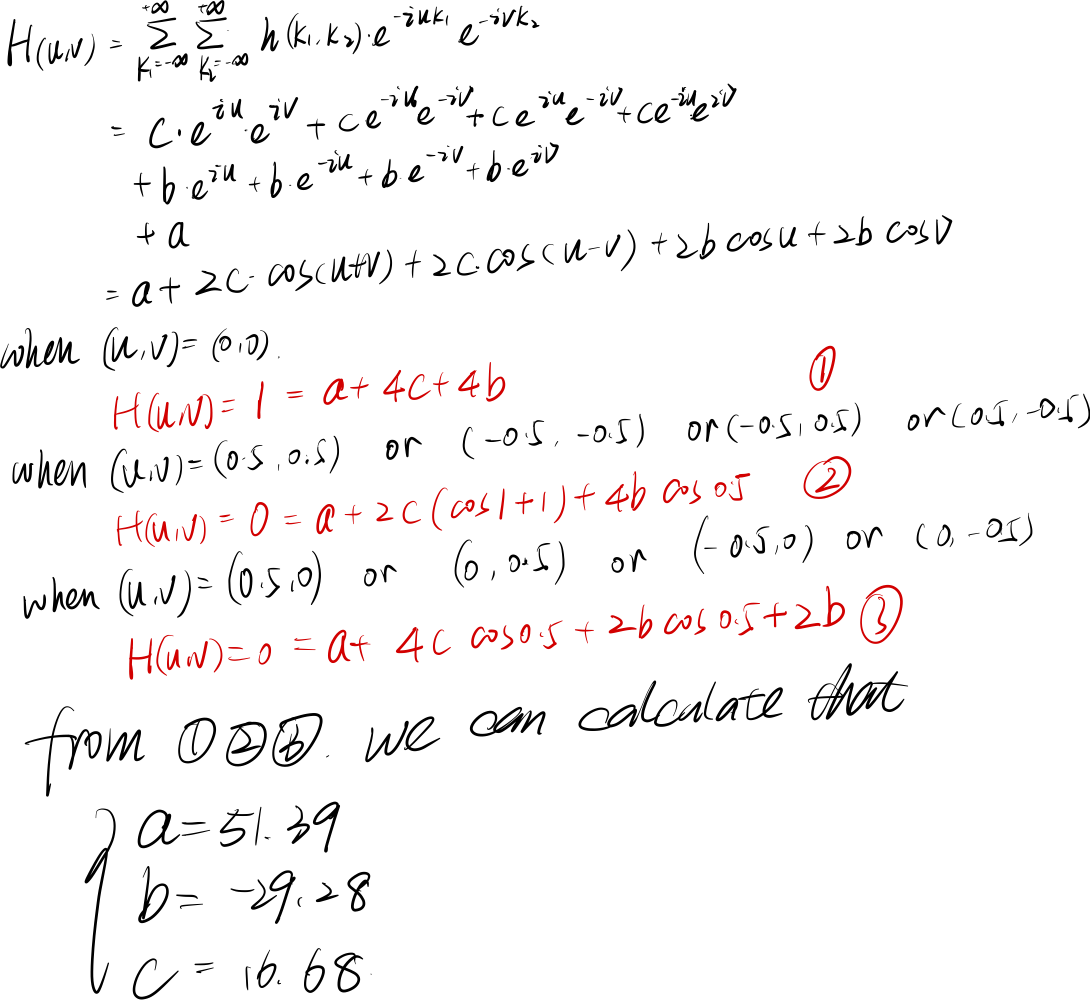 H(u,v) = \sum_{k_1=-\infty}^{+\infty} \sum_{k_2=-\infty}^{+\infty} h(k_1,k_2) \cdot e^{-iuk_1} e^{-ivk_2}
= c \cdot e^{iu} \cdot e^{iv} + ce^{-iu}e^{-iv} + ce^{iu}e^{-iv} + ce^{-iu}e^{iv}
+ b \cdot e^{iu} + b \cdot e^{-iu} + b \cdot e^{-iv} + b \cdot e^{iv}
+ a
= a + 2c \cdot cos(u+v) + 2c \cdot cos(u-v) + 2b cosu + 2b cosv
when (u,v) = (0,0).
H(u,v) = 1 = a + 4c + 4b ①
when (u,v) = (0.5, 0.5) or (-0.5, -0.5) or (-0.5, 0.5) or (0.5, -0.5)
H(u,v) = 0 = a + 2c(cos1+1) + 4b cos0.5 ②
when (u,v) = (0.5, 0) or (0, 0.5) or (-0.5, 0) or (0, -0.5)
H(u,v) = 0 = a + 4c cos0.5 + 2b cos0.5 + 2b ③
from ① ② ③. we can calculate that
{ a = 51.39
b = -29.28
c = 16.68